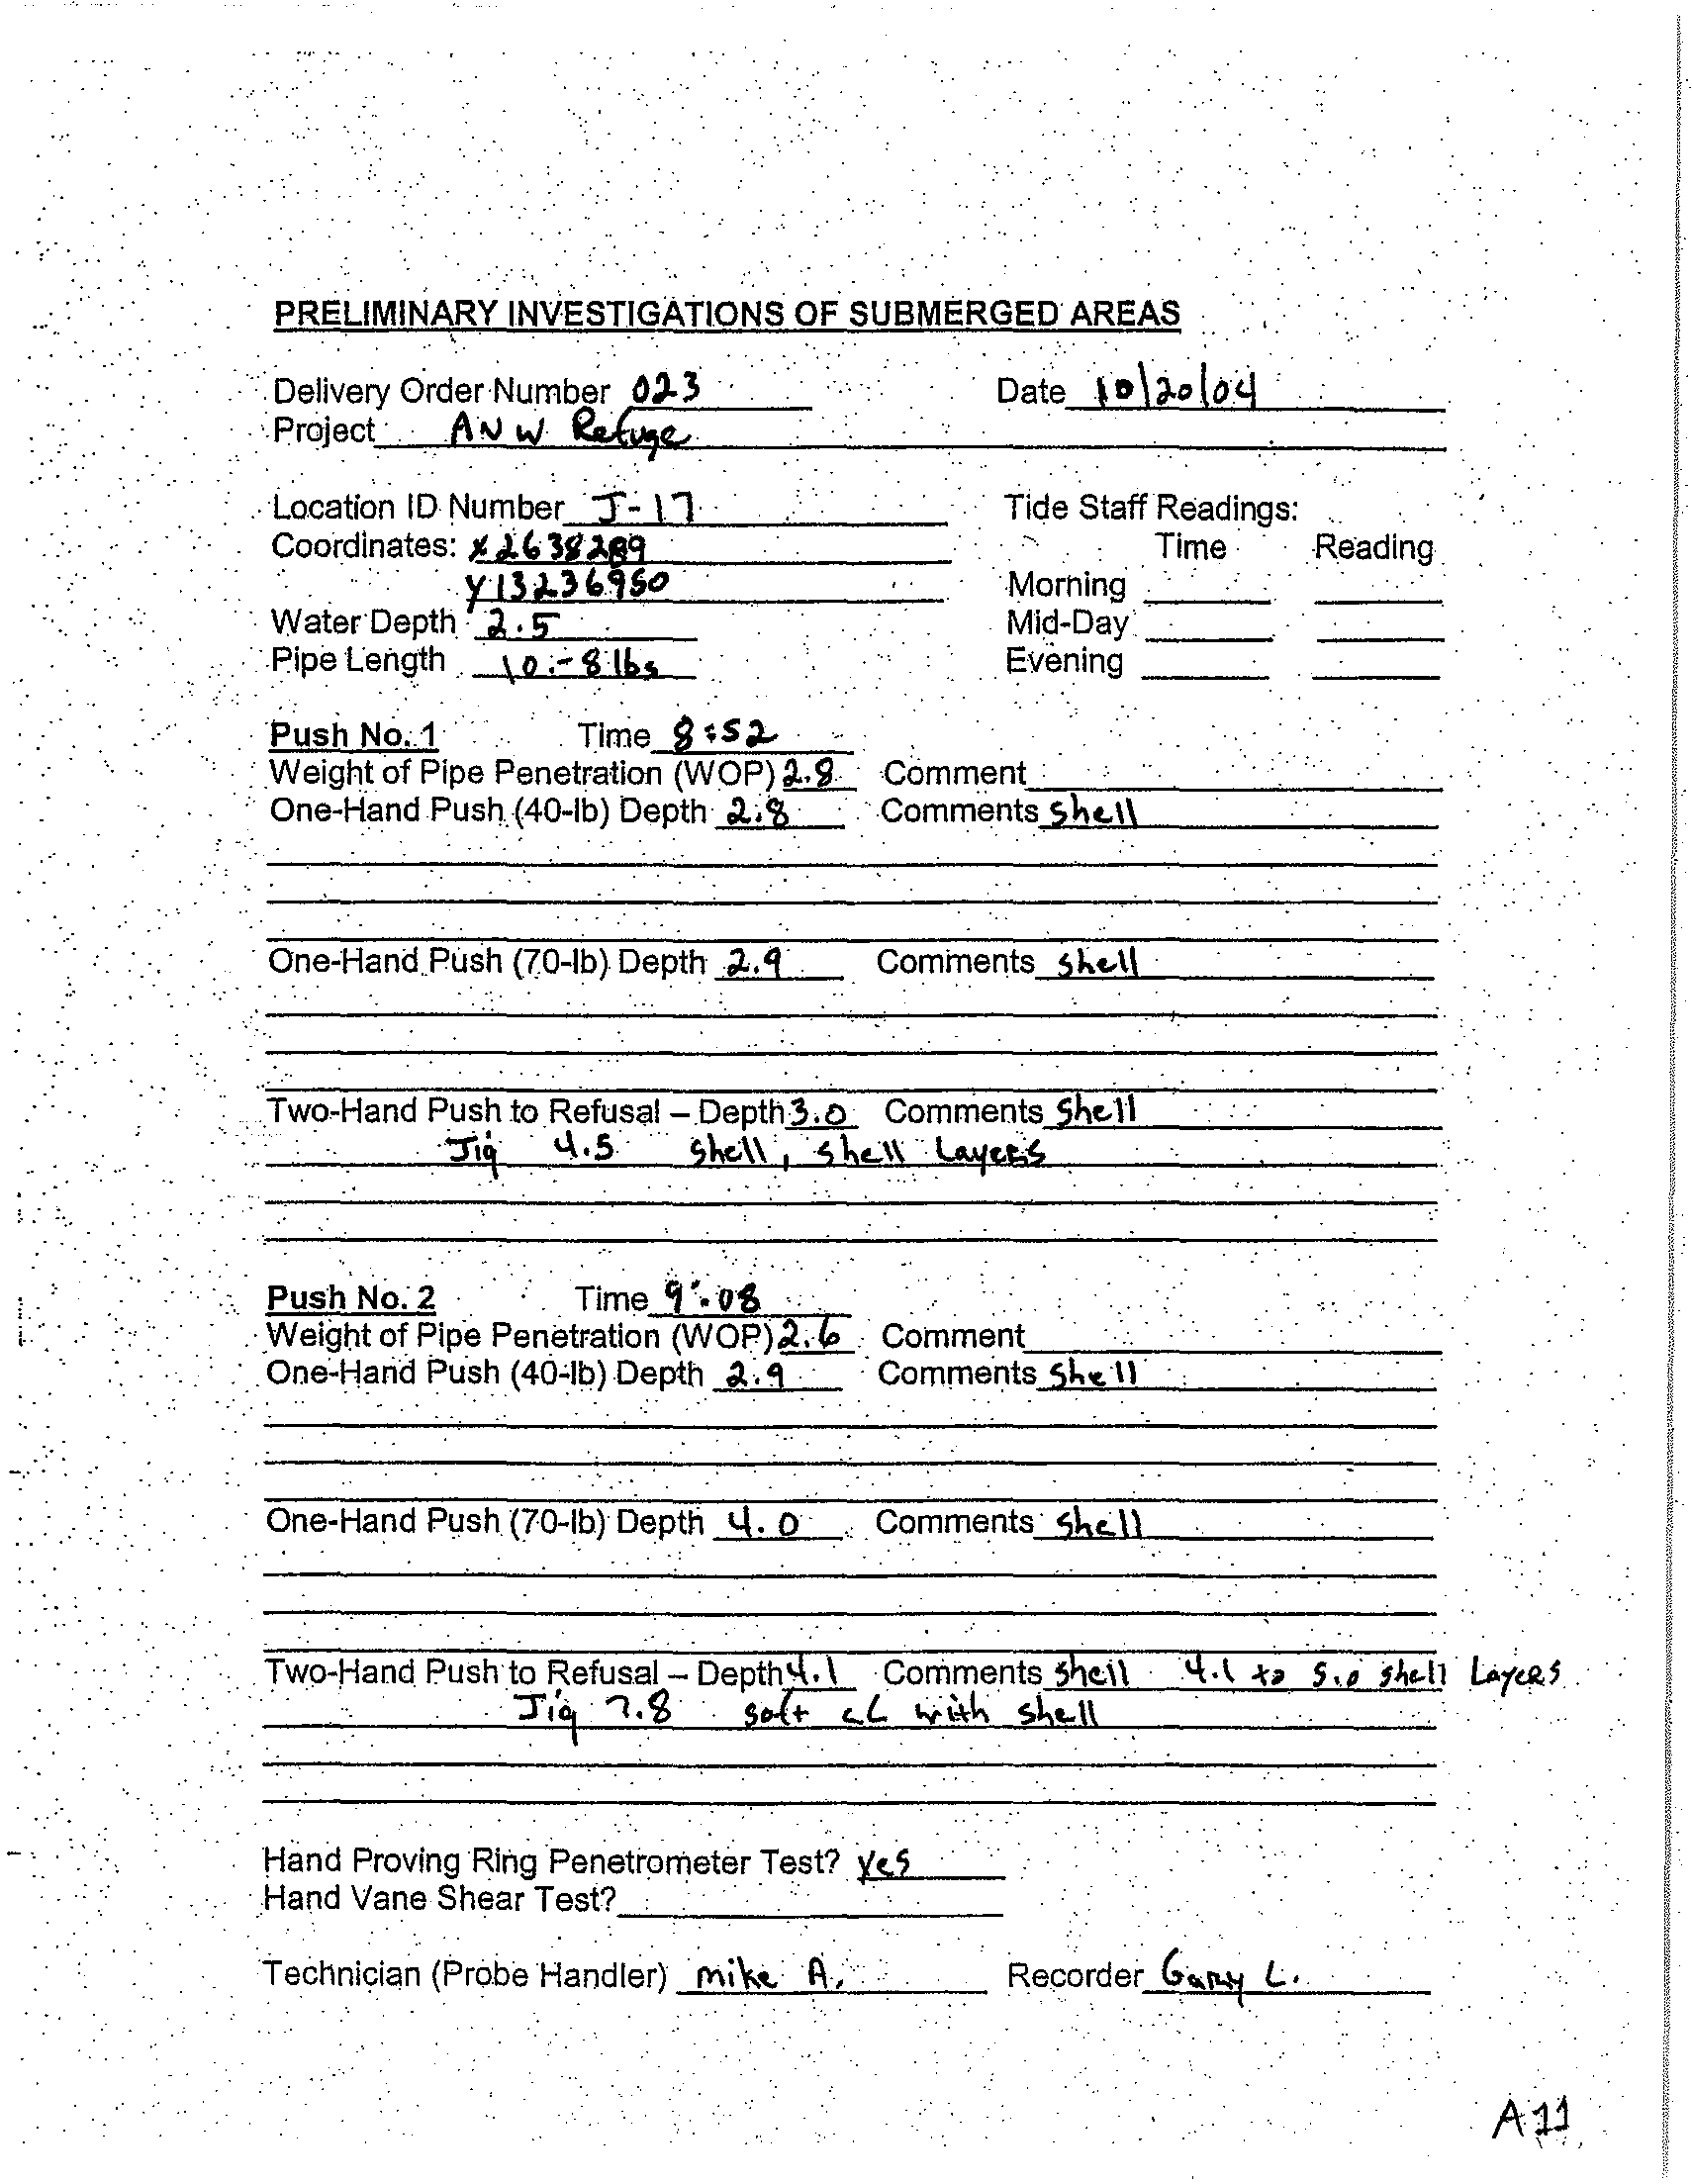 PRELIMINARY INVESTIGATIONS OF SUBMERGED AREAS
Delivery Order Number 023 Date 10/20/04
Project ANW Refuge
Location ID Number J-17 Tide Staff Readings:
Coordinates: X 2638289 Time Reading
Y 13236950 Morning
Water Depth 2.5 Mid-Day
Pipe Length 10.-8 lbs Evening
Push No. 1 Time 8:52
Weight of Pipe Penetration (WOP) 2.8 Comment
One-Hand Push (40-lb) Depth 2.8 Comments shell
One-Hand Push (70-lb) Depth 2.9 Comments shell
Two-Hand Push to Refusal – Depth 3.0 Comments Shell
Jig 4.5 shell, shell Layers
Push No. 2 Time 9:08
Weight of Pipe Penetration (WOP) 2.6 Comment
One-Hand Push (40-lb) Depth 2.9 Comments Shell
One-Hand Push (70-lb) Depth 4.0 Comments Shell
Two-Hand Push to Refusal – Depth 4.1 Comments shell 4.1 to 5.0 shell Layers
Jig 7.8 soft CL with shell
Hand Proving Ring Penetrometer Test? Yes
Hand Vane Shear Test?
Technician (Probe Handler) mike A. Recorder Gary L.
A11